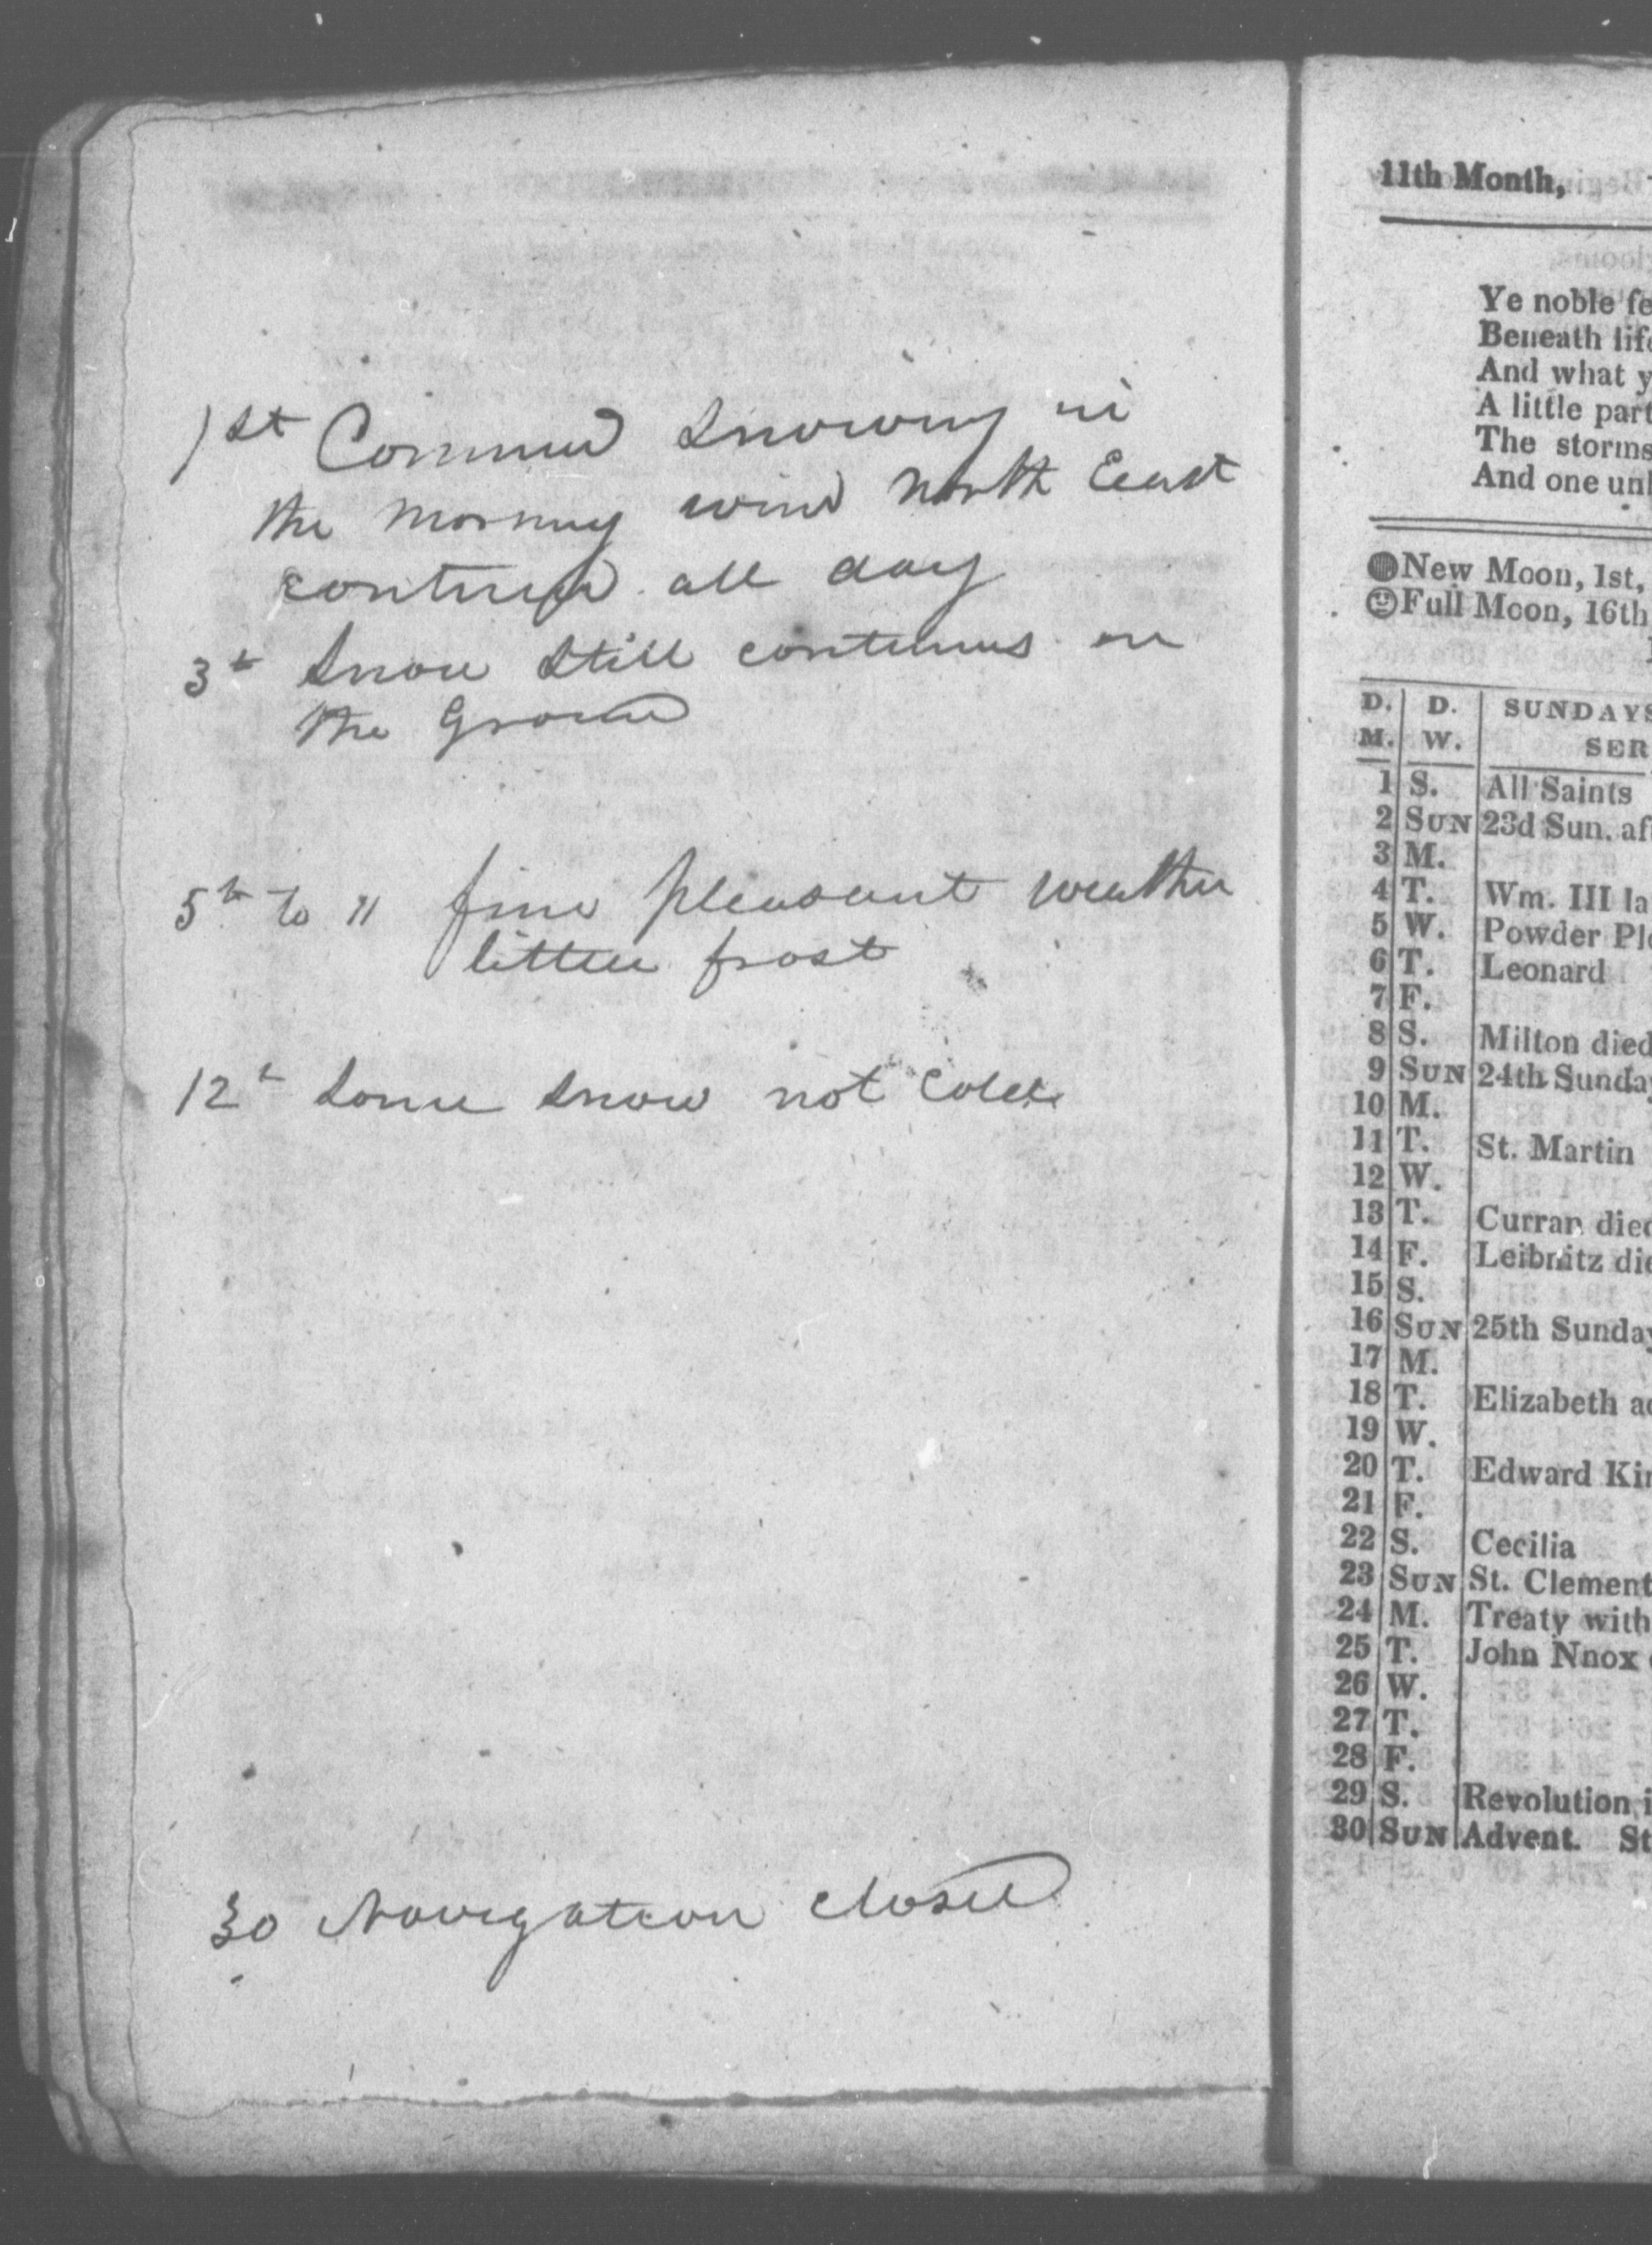 1st Commd Snowing in
the morning wind North East
continued all day
3d Snow Still continues on
the Ground
5th to 11 fine pleasant weather
little frost
12th Some Snow not Cold
30 Navigation Closed
11th Month,
Ye noble fe
Beneath life
And what y
A little part
The storms
And one un
New Moon, 1st,
Full Moon, 16th
D. D. SUNDAYS
M. W. SER
1 S. All Saints
2 SUN 23d Sun. af
3 M.
4 T. Wm. III la
5 W. Powder Plo
6 T. Leonard
7 F.
8 S. Milton died
9 SUN 24th Sunday
10 M.
11 T. St. Martin
12 W.
13 T. Curran died
14 F. Leibnitz die
15 S.
16 SUN 25th Sunday
17 M.
18 T. Elizabeth ac
19 W.
20 T. Edward Kin
21 F.
22 S. Cecilia
23 SUN St. Clement
24 M. Treaty with
25 T. John Nnox
26 W.
27 T.
28 F.
29 S. Revolution i
30 SUN Advent. St